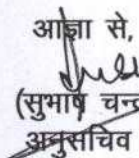 आज्ञा से,
(सुभाष चन्द्र
अनुसचिव